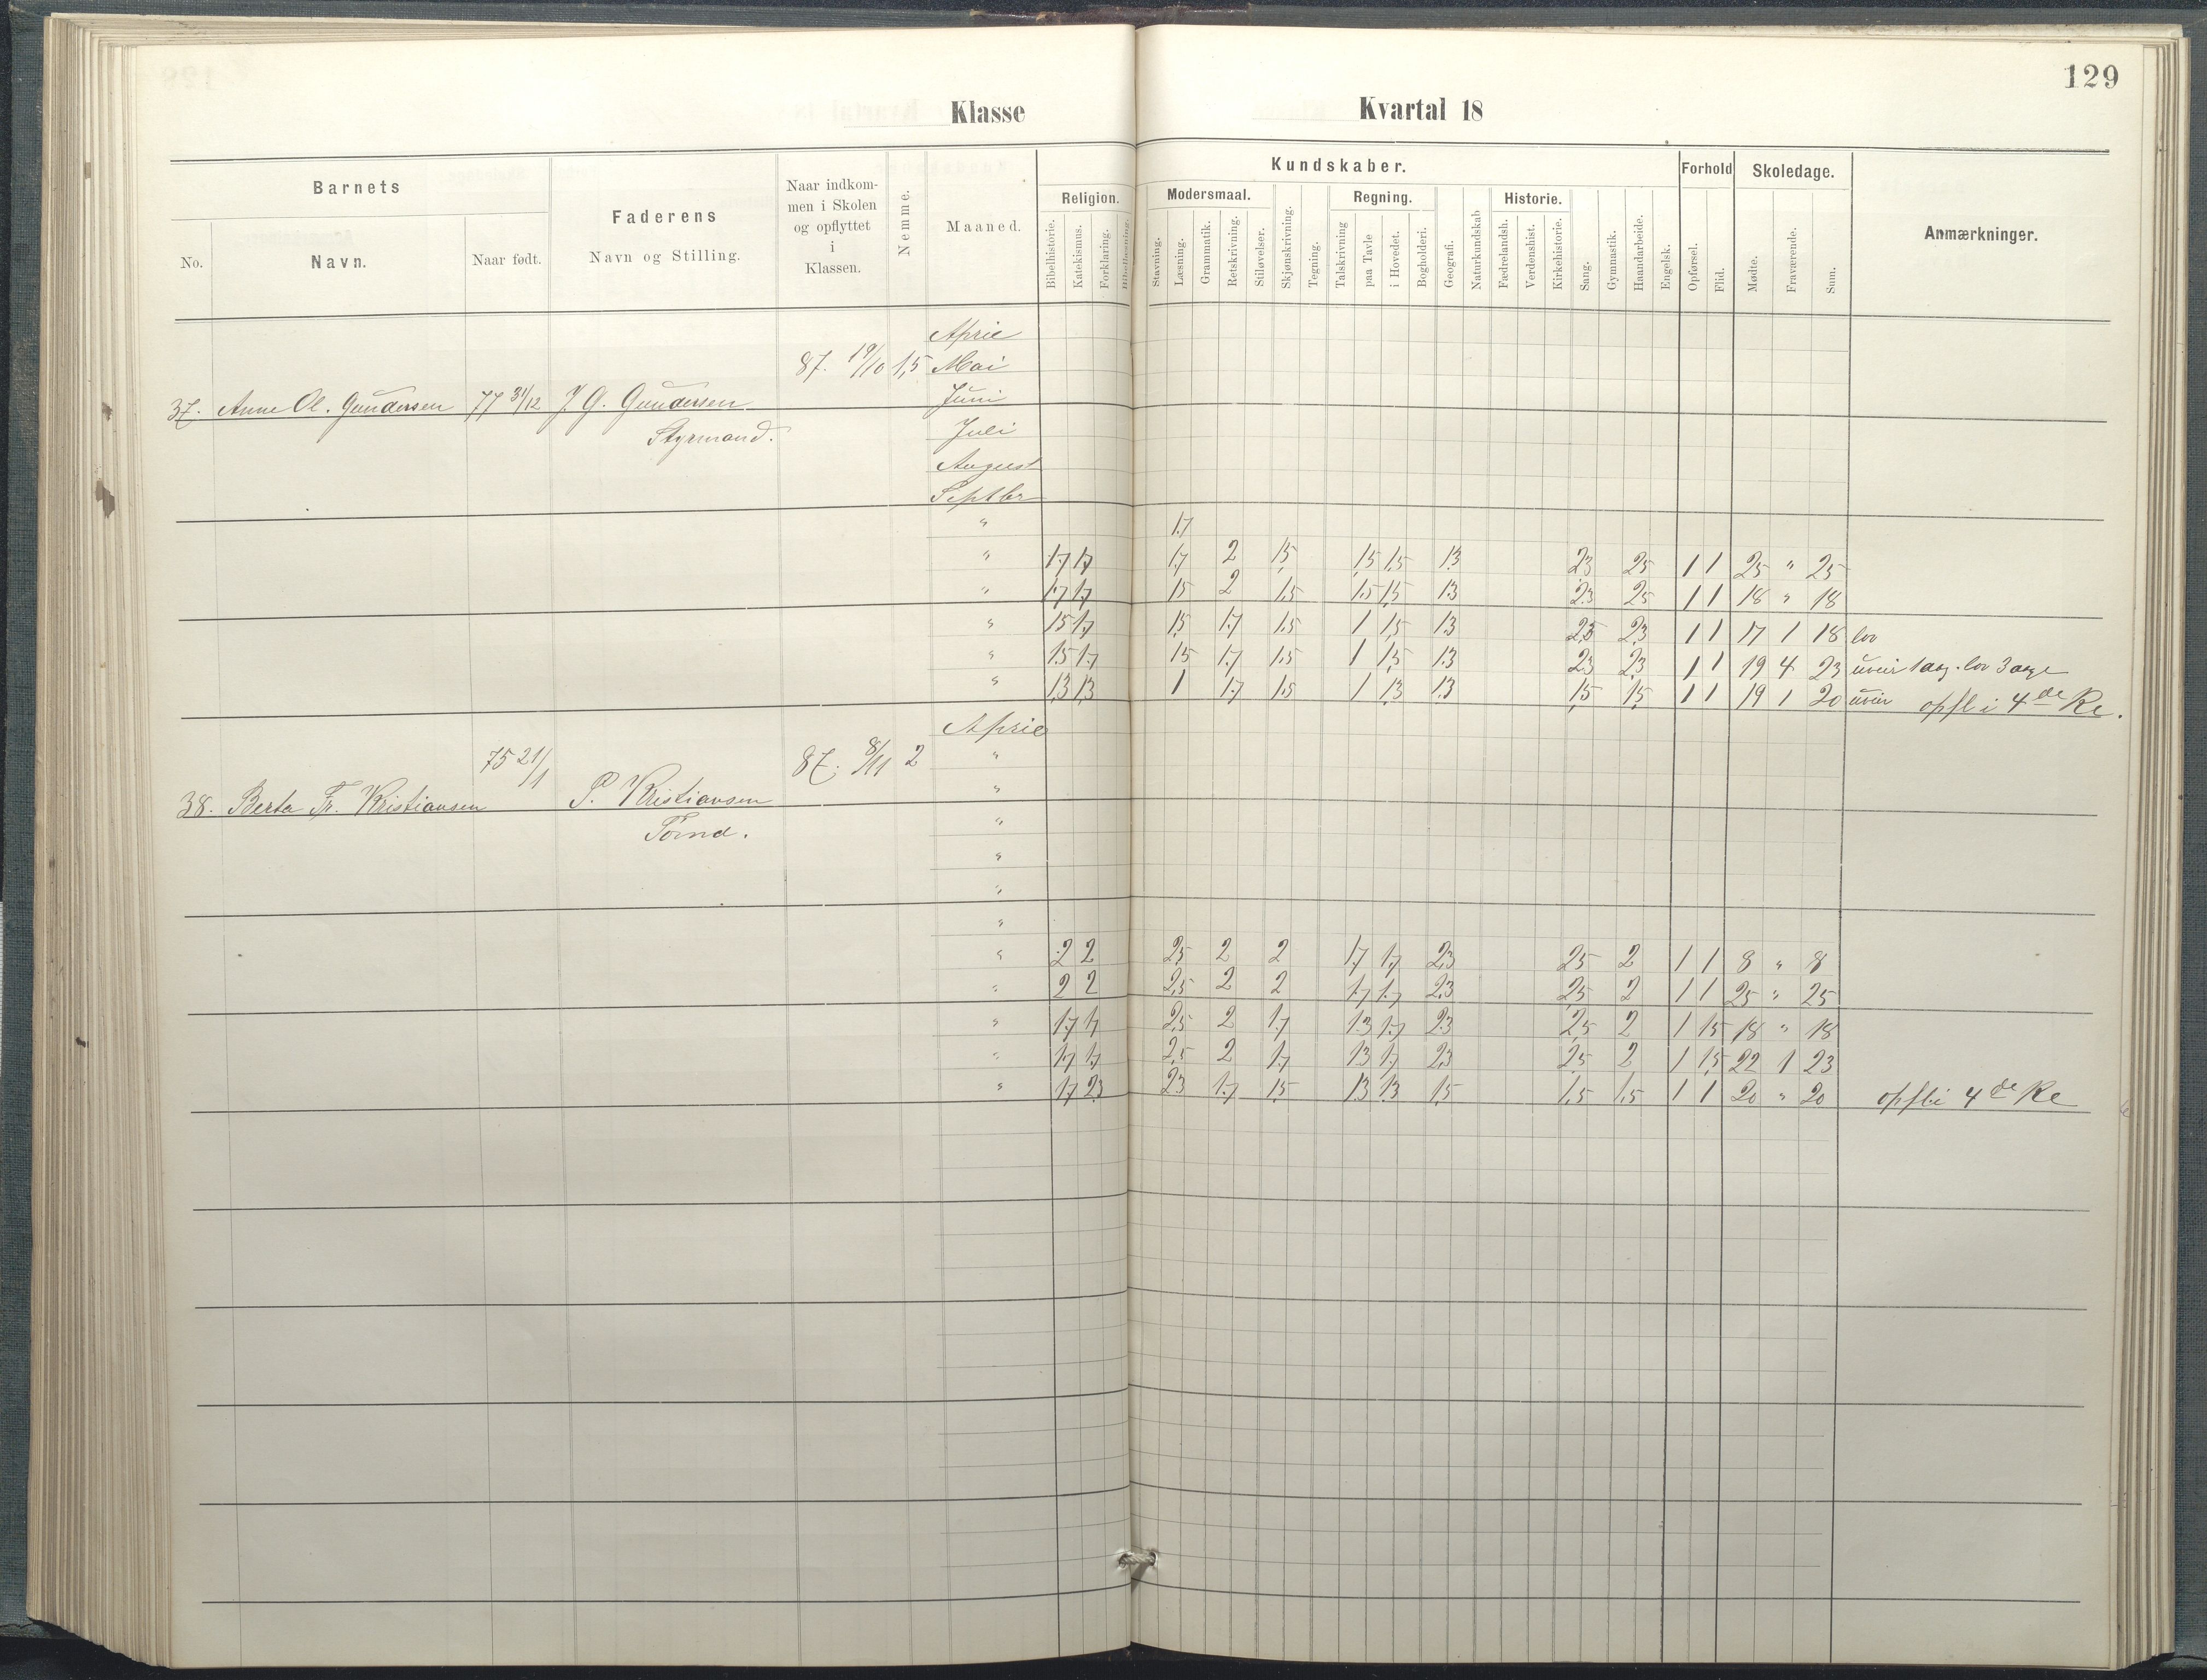 129
Klasse Kvartal 18
Barnets
No. Navn. Naar født.
Faderens
Navn og Stilling.
Naar indkom-
men i Skolen
og opflyttet
i
Klassen.
Nemme.
Maaned.
Kundskaber.
Religion.
Bibelhistorie. Katekismus. Forklaring. Bibellæsning.
Modersmaal.
Stavning. Læsning. Grammatik. Retskrivning. Stiløvelser.
Skjønskrivning. Tegning.
Regning.
Talskrivning paa Tavle i Hovedet. Bogholderi.
Geografi. Naturkundskab
Historie.
Fædrelandsh. Verdenshist. Kirkehistorie.
Sang. Gymnastik. Haandarbeide. Engelsk.
Forhold
Opførsel. Flid.
Skoledage.
Mødte. Fraværende. Sum.
Anmærkninger.
April
87. 19/10 1,5 Mai
37. Anne Ol. Gundersen 77 31/12 J. G. Gundersen Juni
Styrmand. Juli
August
Septbr
" 1.7
" 1.7 1.7 1.7 2 1.5 1.5 1.5 1.3 2.3 2.5 1 1 25 " 25
" 1.7 1.7 1.5 2 1.5 1.5 1.5 1.3 2.3 2.5 1 1 18 " 18
" 1.5 1.7 1.5 1.7 1.5 1 1.5 1.3 2.5 2.3 1 1 17 1 18 lov
" 1.5 1.7 1.5 1.7 1.5 1 1.5 1.3 2.3 2.3 1 1 19 4 23 uveir 1 dag. lov 3 dage
" 1.3 1.3 1 1.7 1.5 1 1.3 1.3 1.5 1.5 1 1 19 1 20 uveir opfl i 4de Kl.
April
75 21/1 87. 8/11 2 "
38. Berta Fr. Kristiansen P. Kristiansen "
Tømd. "
"
"
"
" 2 2 2.5 2 2 1.7 1.7 2.3 2.5 2 1 1 8 " 8
" 2 2 2.5 2 2 1.7 1.7 2.3 2.5 2 1 1 25 " 25
" 1.7 1.7 2.5 2 1.7 1.3 1.7 2.3 2.5 2 1 1.5 18 " 18
" 1.7 1.7 2.5 2 1.7 1.3 1.7 2.3 2.5 2 1 1.5 22 1 23
" 1.7 2.3 2.3 1.7 1.5 1.3 1.3 1.5 1.5 1.5 1 1 20 " 20 opfl i 4de Kl